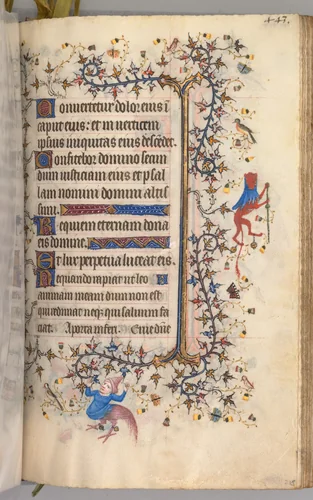 443.
Convertetur dolor eius ī
caput eius: et in verticem
ipsius iniquitas eius descēdet.
Confitebor domino secun
dum iusticiam eius et psal
lam nomini domini altis
simi.
Requiem eternam dona
eis domine.
Et lux perpetua luceat eis.
Nequando rapiat ut leo
animam meam dum non est
qui redimat neqȝ qui saluum fa
ciat. A porta inferi.